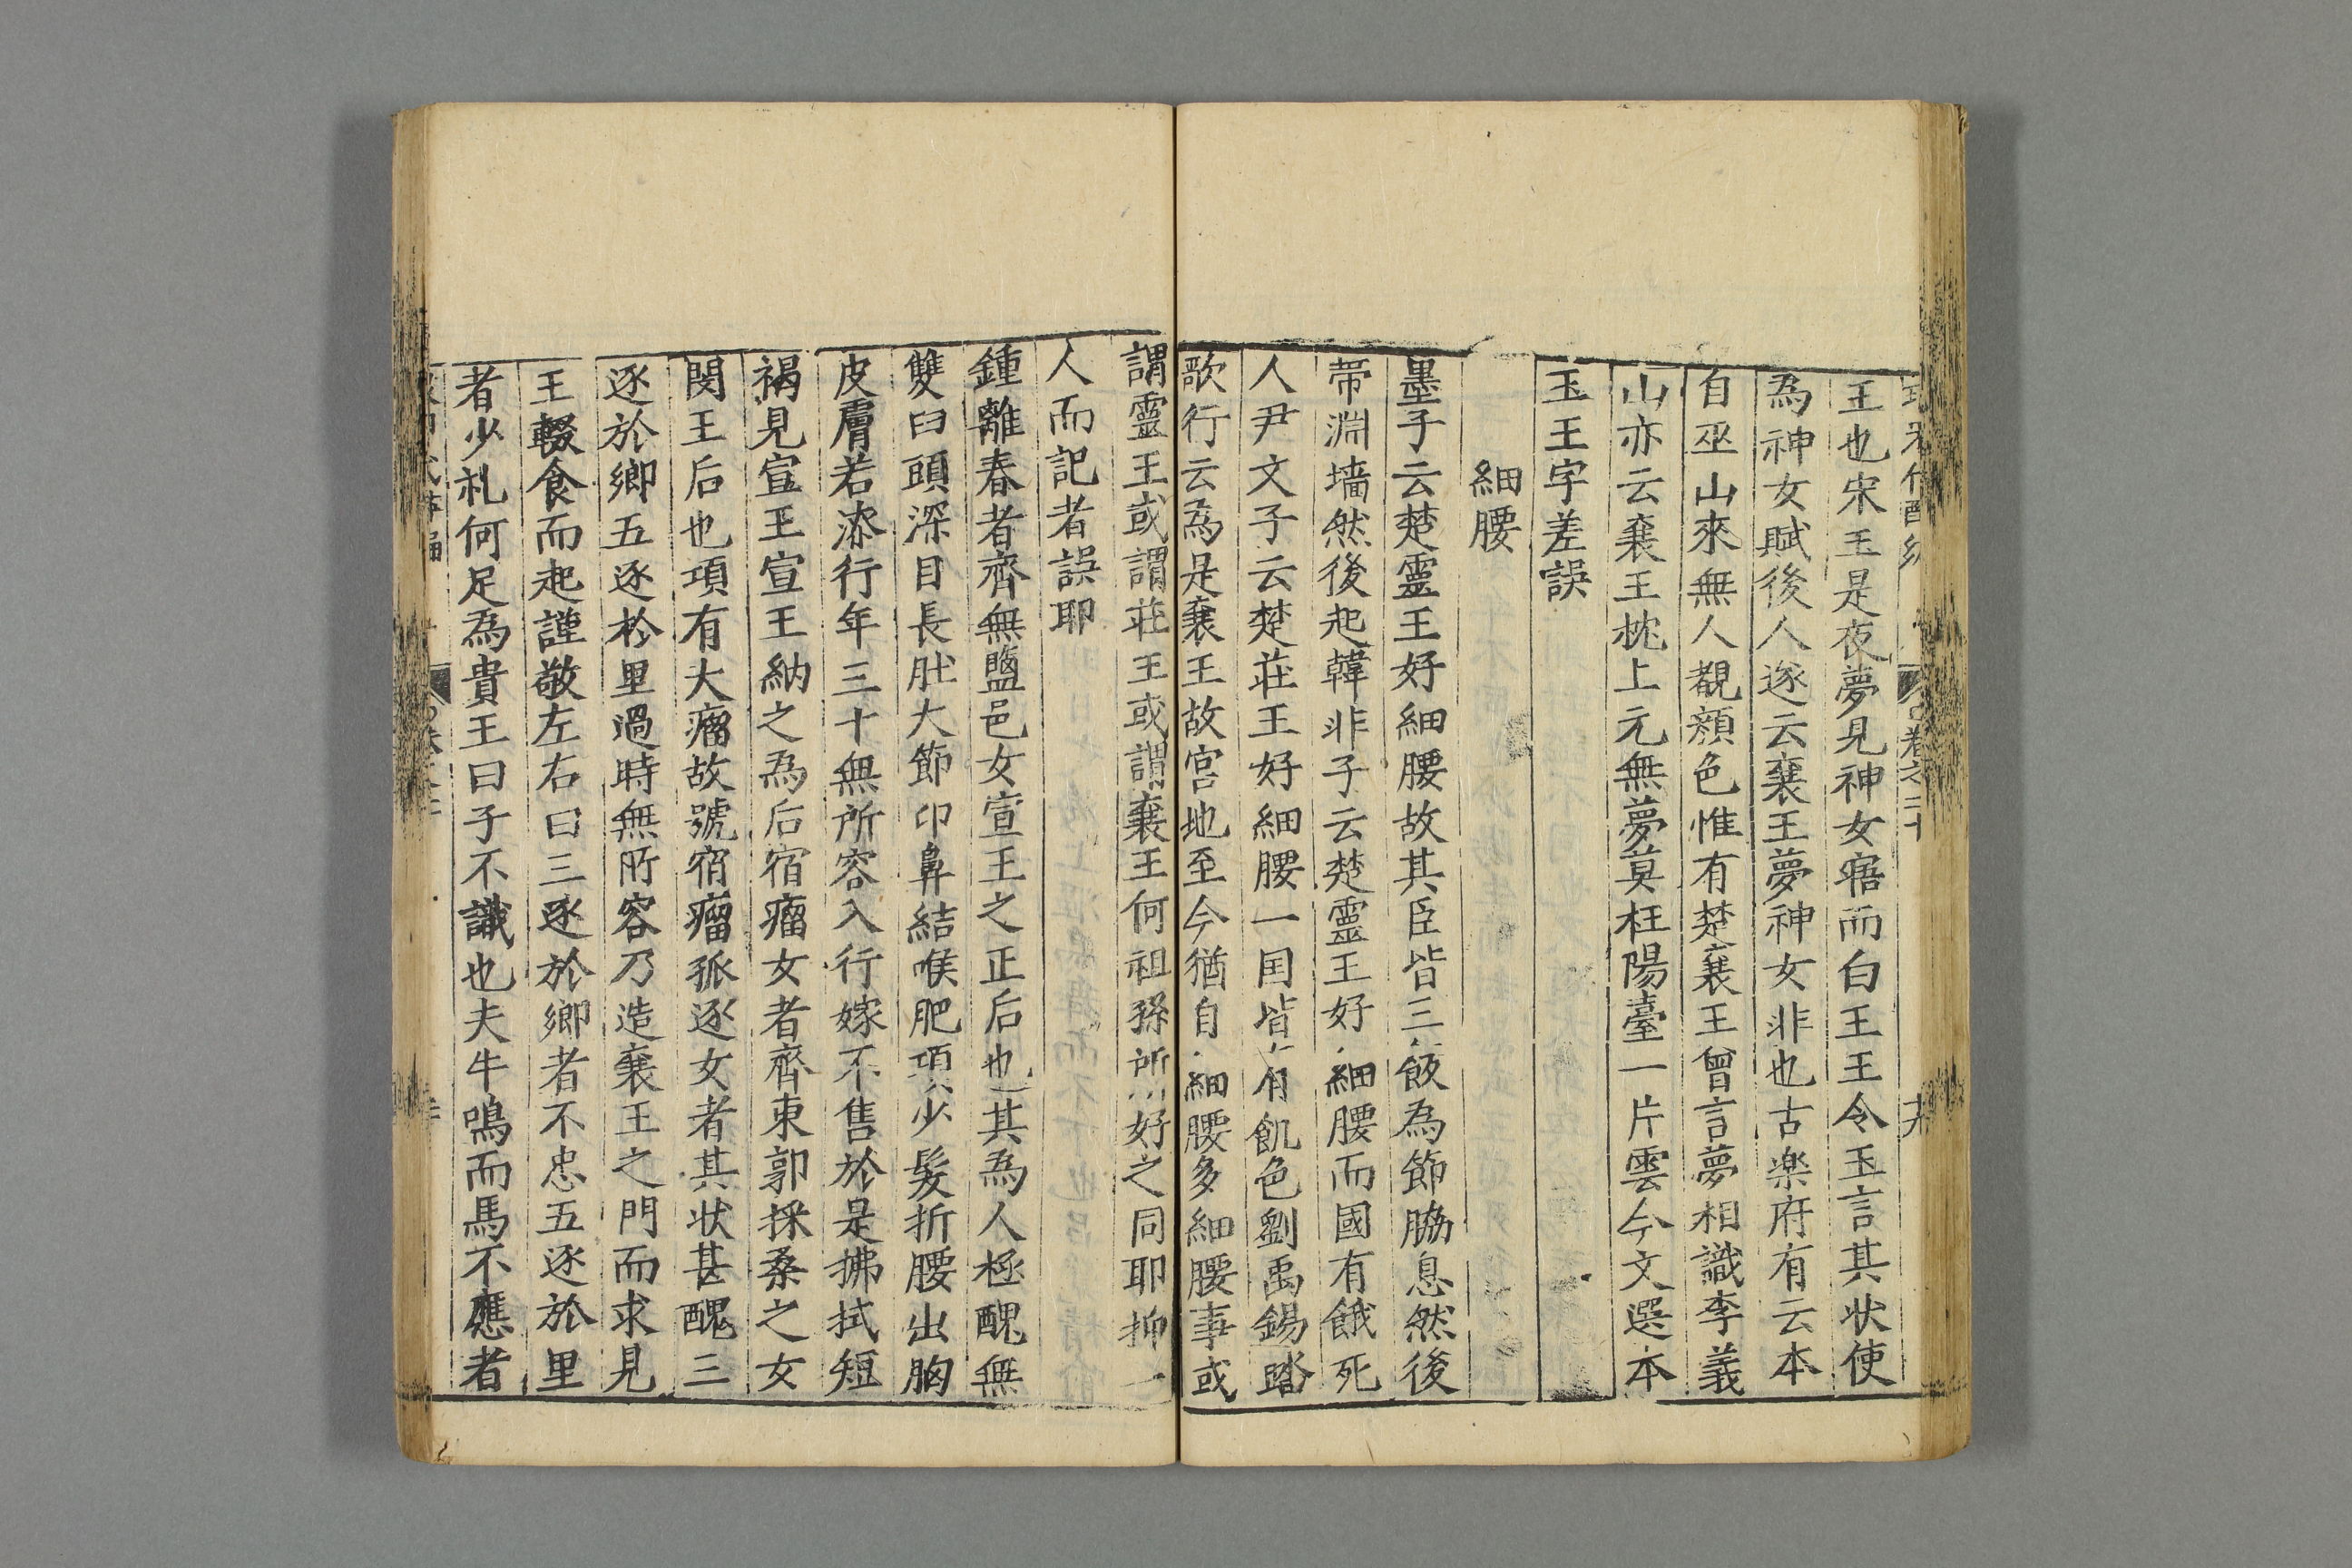 王也宋玉是夜夢見神女寤而白王王令玉言其状使
為神女賦後人遂云襄王夢神女非也古楽府有云本
自巫山來無人覩顔色惟有楚襄王曾言夢相識李義
山亦云襄王枕上元無夢莫枉陽臺一片雲今文選本
玉王字差誤
細腰
墨子云楚靈王好細腰故其臣皆三飯為節脇息然後
帶淵墻然後起韓非子云楚靈王好細腰而國有餓死
人尹文子云楚莊王好細腰一国皆有飢色劉禹錫踏
歌行云為是襄王故宮地至今猶自細腰多細腰事或
謂靈王或謂莊王或謂襄王何祖孫所好之同耶抑一
人而記者誤耶
鍾離春者齊無鹽邑女宣王之正后也其為人極醜無
雙臼頭深目長肚大節卬鼻結喉肥項少髮折腰出胸
皮膚若漆行年三十無所容入行嫁不售於是拂拭短
褐見宣王宣王納之為后宿瘤女者齊東郭採桑之女
閔王后也項有大瘤故號宿瘤孤逐女者其状甚醜三
逐於鄉五逐於里過時無所容乃造襄王之門而求見
王輟食而起謹敬左右曰三逐於鄉者不忠五逐於里
者少礼何足為貴王曰子不識也夫牛鳴而馬不應者